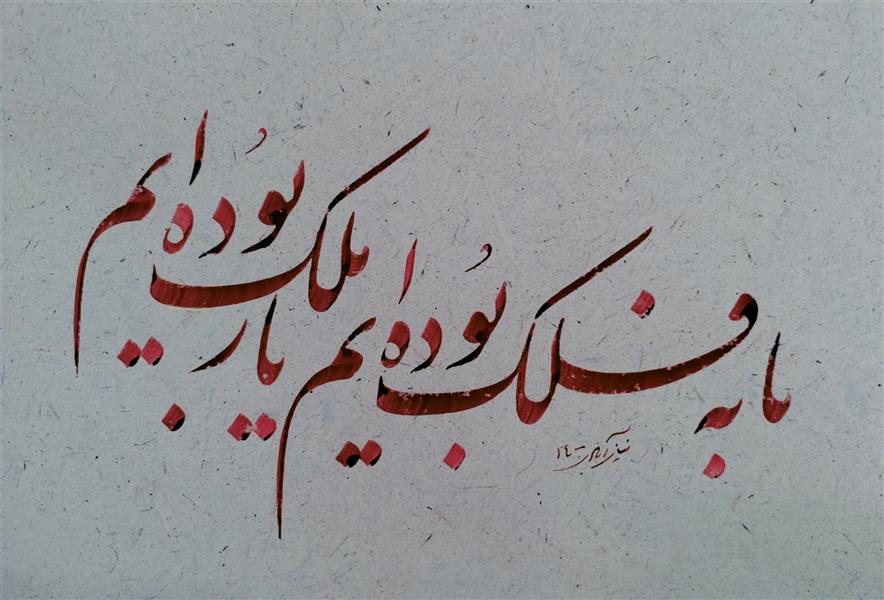 ما به فلک بوده‌ایم
یار ملک بوده‌ایم